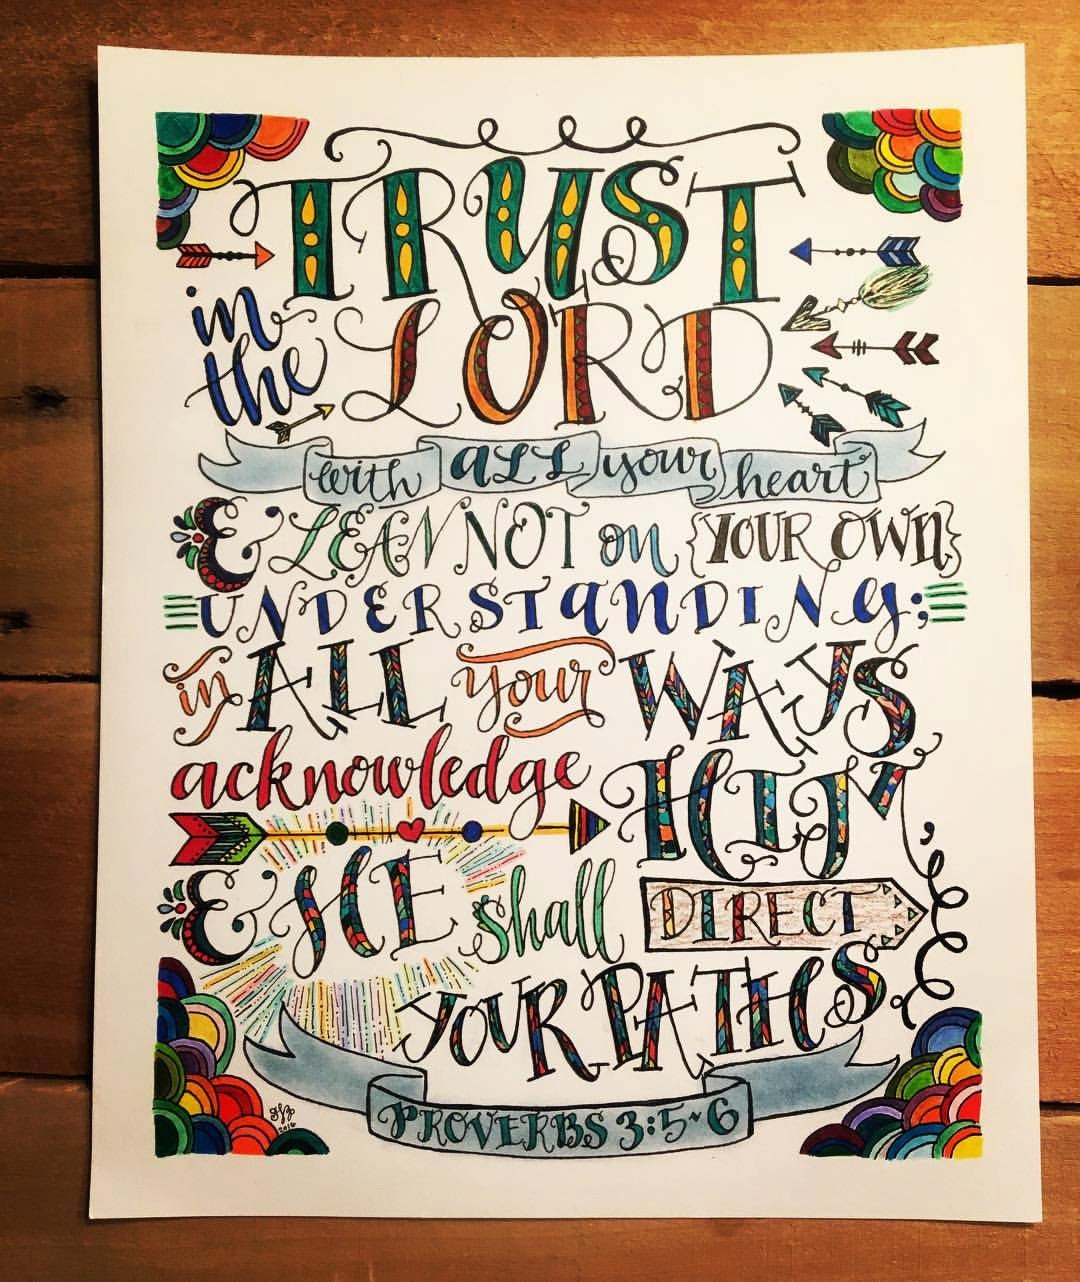 TRUST
in the LORD
with ALL your heart
& LEAN NOT on {YOUR OWN}
UNDERSTANDING;
in ALL your WAYS
acknowledge HIM,
& HE shall DIRECT
YOUR PATHS.
PROVERBS 3:5~6
2016